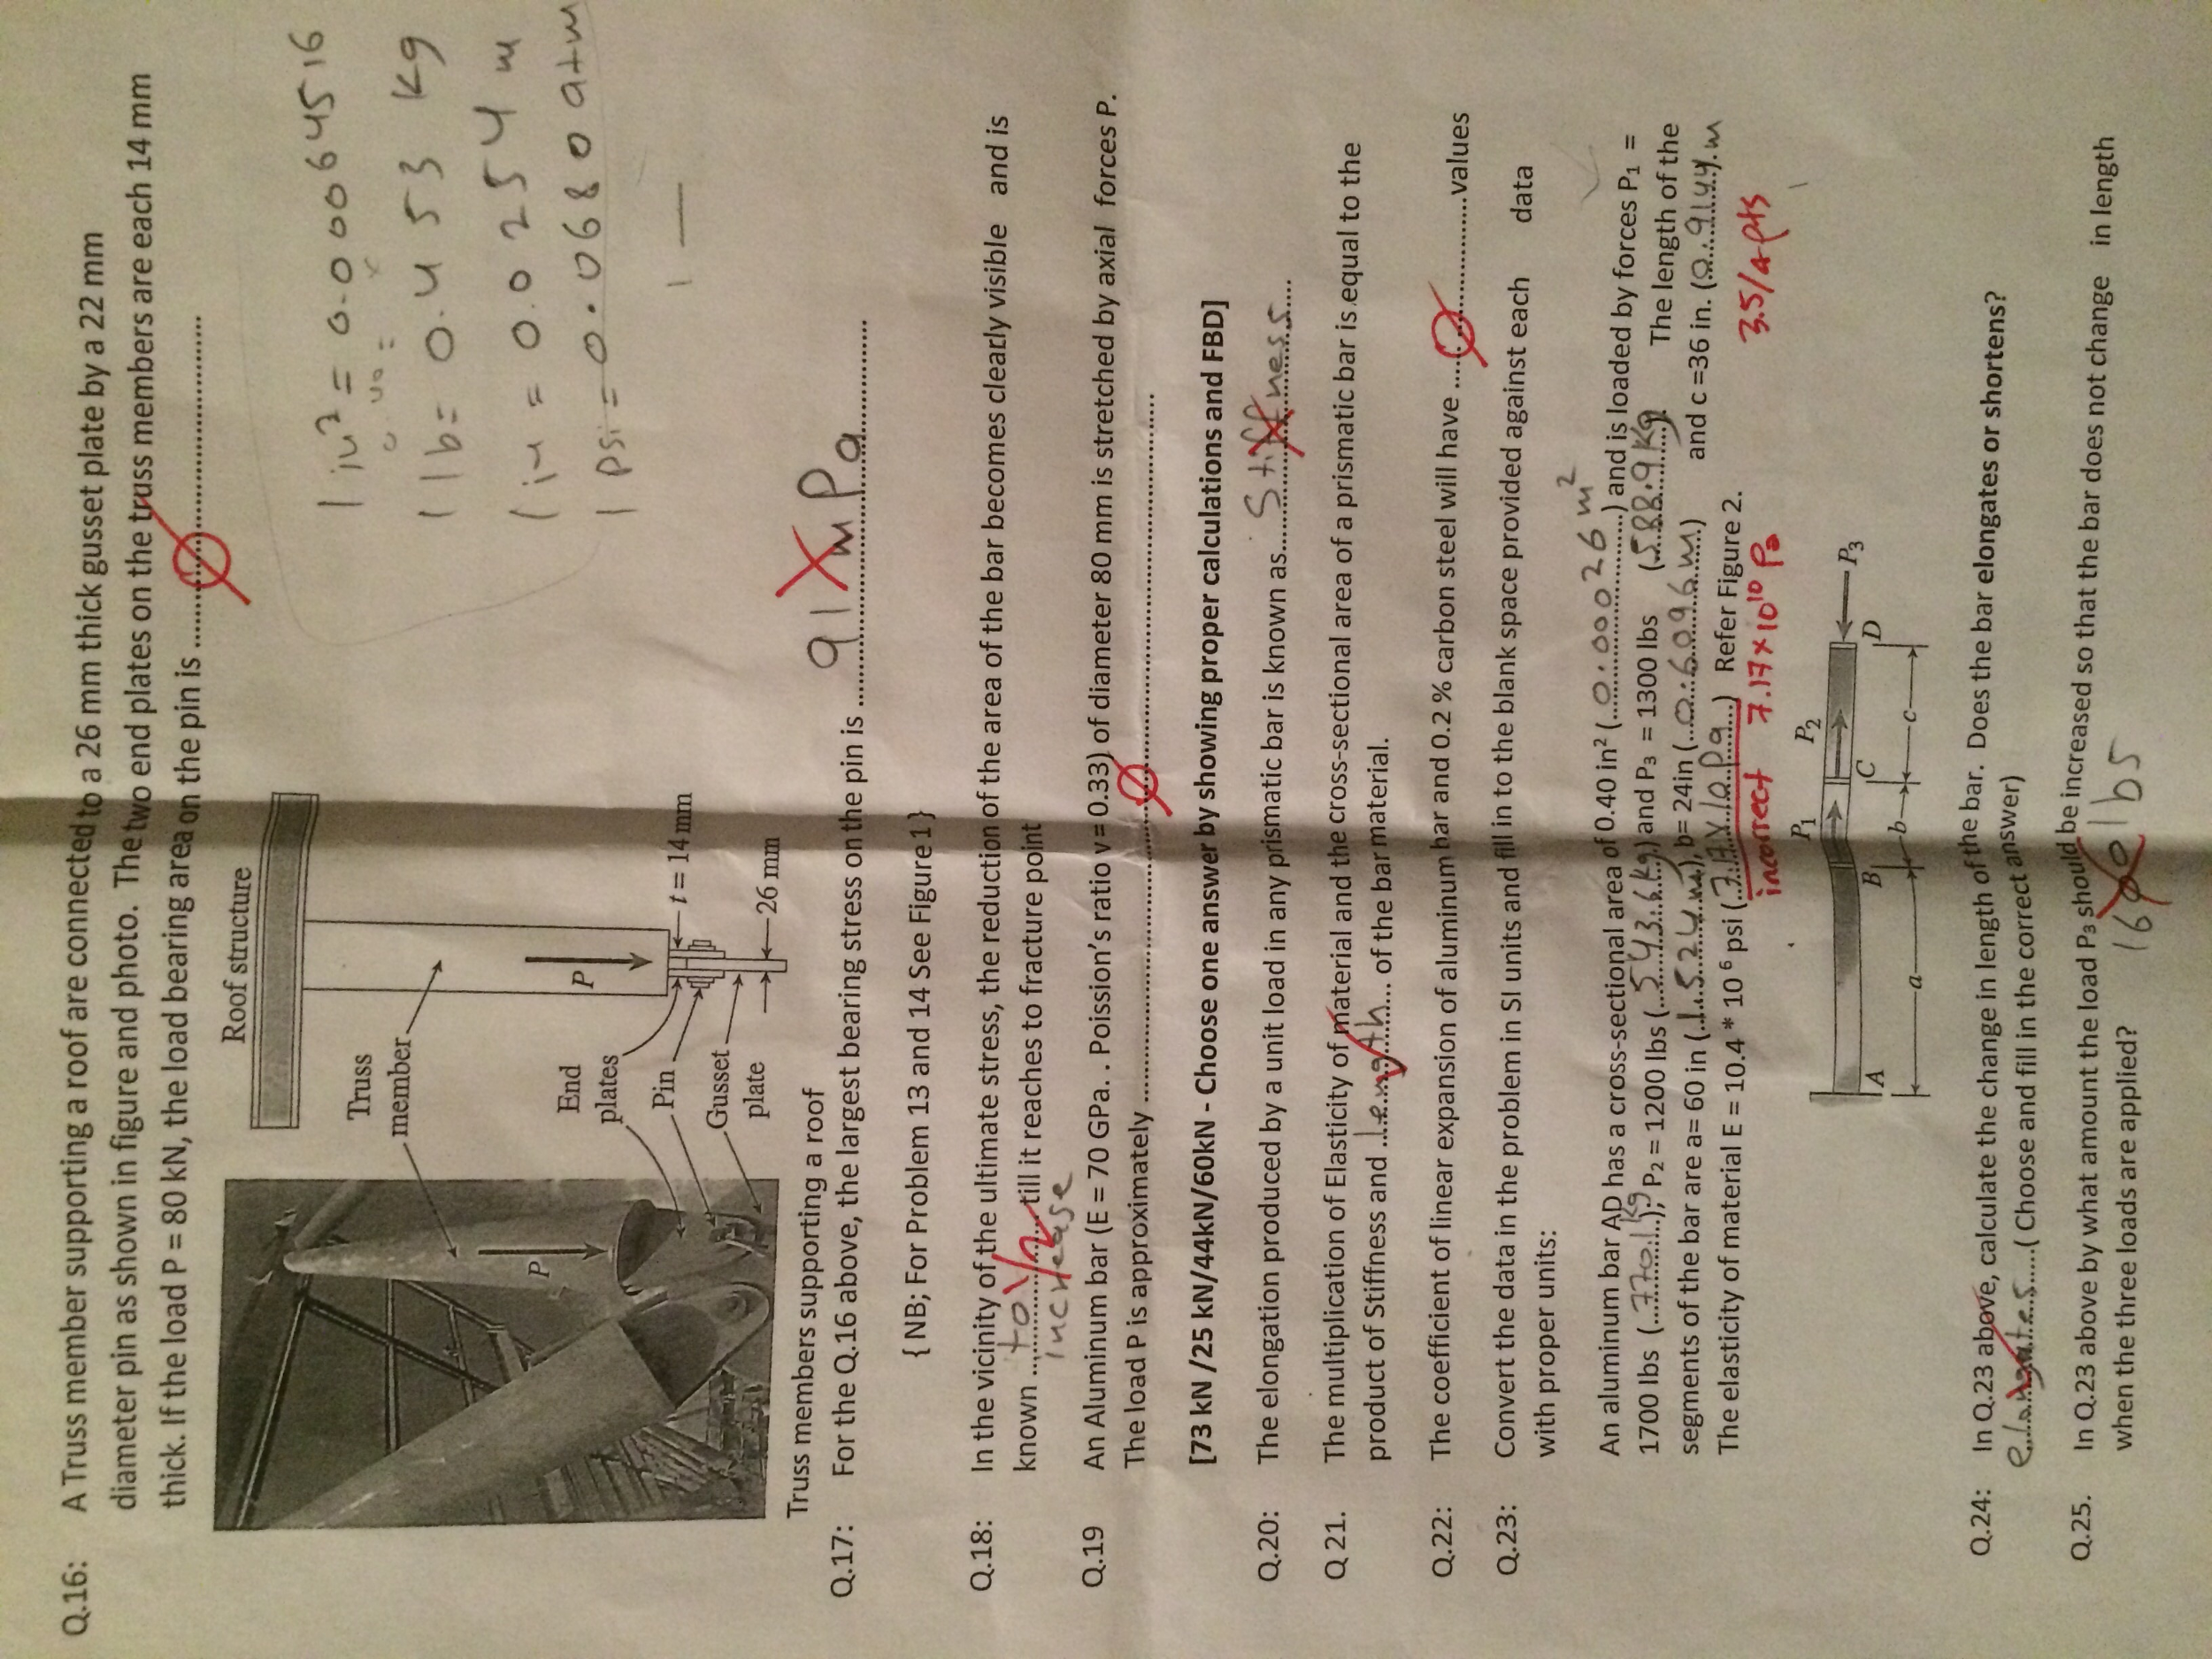 Q.16: A Truss member supporting a roof are connected to a 26 mm thick gusset plate by a 22 mm
diameter pin as shown in figure and photo. The two end plates on the truss members are each 14 mm
thick. If the load P = 80 kN, the load bearing area on the pin is ..............................
Roof structure
Truss
member
P
P
End
plates
Pin
Gusset
plate
t = 14 mm
26 mm
1 in² = 0.00064516
1 lb = 0.453 kg
1 in = 0.0254 m
1 psi = 0.0680 atm
Truss members supporting a roof
Q.17: For the Q.16 above, the largest bearing stress on the pin is ...... 91 mPa ......
{ NB; For Problem 13 and 14 See Figure1}
Q.18: In the vicinity of the ultimate stress, the reduction of the area of the bar becomes clearly visible and is
known .... to increase .... till it reaches to fracture point
Q.19 An Aluminum bar (E = 70 GPa. . Poission's ratio v = 0.33) of diameter 80 mm is stretched by axial forces P.
The load P is approximately ..............................
[73 kN /25 kN/44kN/60kN - Choose one answer by showing proper calculations and FBD]
Q.20: The elongation produced by a unit load in any prismatic bar is known as.... Stiffness ....
Q 21. The multiplication of Elasticity of material and the cross-sectional area of a prismatic bar is equal to the
product of Stiffness and ...length... of the bar material.
Q.22: The coefficient of linear expansion of aluminum bar and 0.2 % carbon steel will have ....................values
Q.23: Convert the data in the problem in SI units and fill in to the blank space provided against each data
with proper units:
An aluminum bar AD has a cross-sectional area of 0.40 in² (...0.00026 m²...) and is loaded by forces P1 =
1700 lbs (...770.1 kg...); P2 = 1200 lbs (...543.6 kg...) and P3 = 1300 lbs (...588.9 kg...) The length of the
segments of the bar are a= 60 in (...1.524 m...), b= 24in (...0.6096 m...) and c =36 in. (...0.9144.m
The elasticity of material E = 10.4 * 10 6 psi (...7.17 x 10 Pa...) Refer Figure 2.
incorrect 7.17 × 10¹⁰ Pa
3.5/4 pts
P1
P2
P3
A
B
C
D
a
b
c
Q.24: In Q.23 above, calculate the change in length of the bar. Does the bar elongates or shortens?
elongates .....( Choose and fill in the correct answer)
Q.25. In Q.23 above by what amount the load P3 should be increased so that the bar does not change in length
when the three loads are applied?
lbs